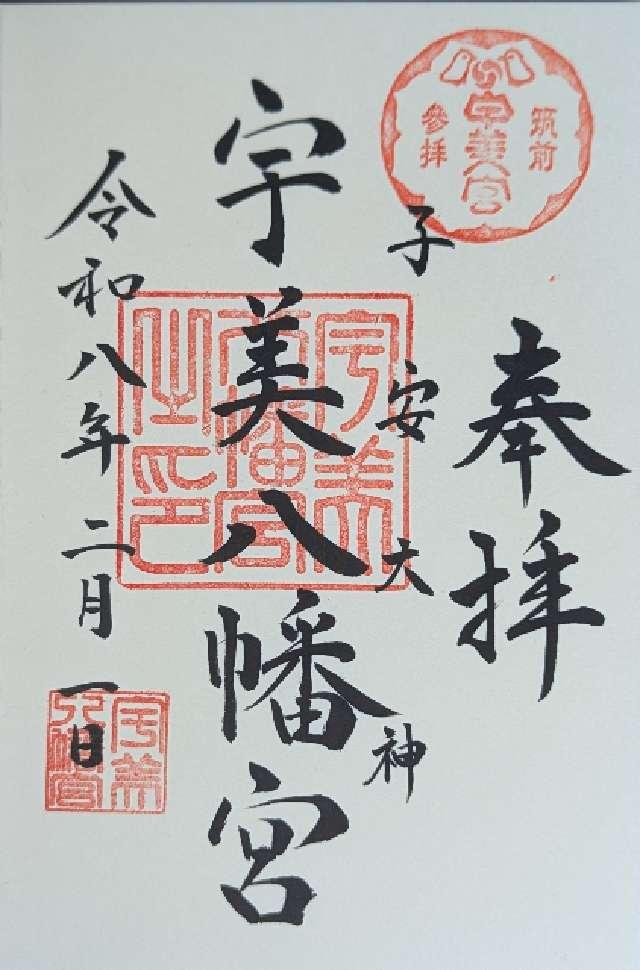 筑前
宇美宮
參拝
奉拝
子安大神
宇美八幡宮
宇美八幡宮之印
令和八年二月一日
宇美八幡宮